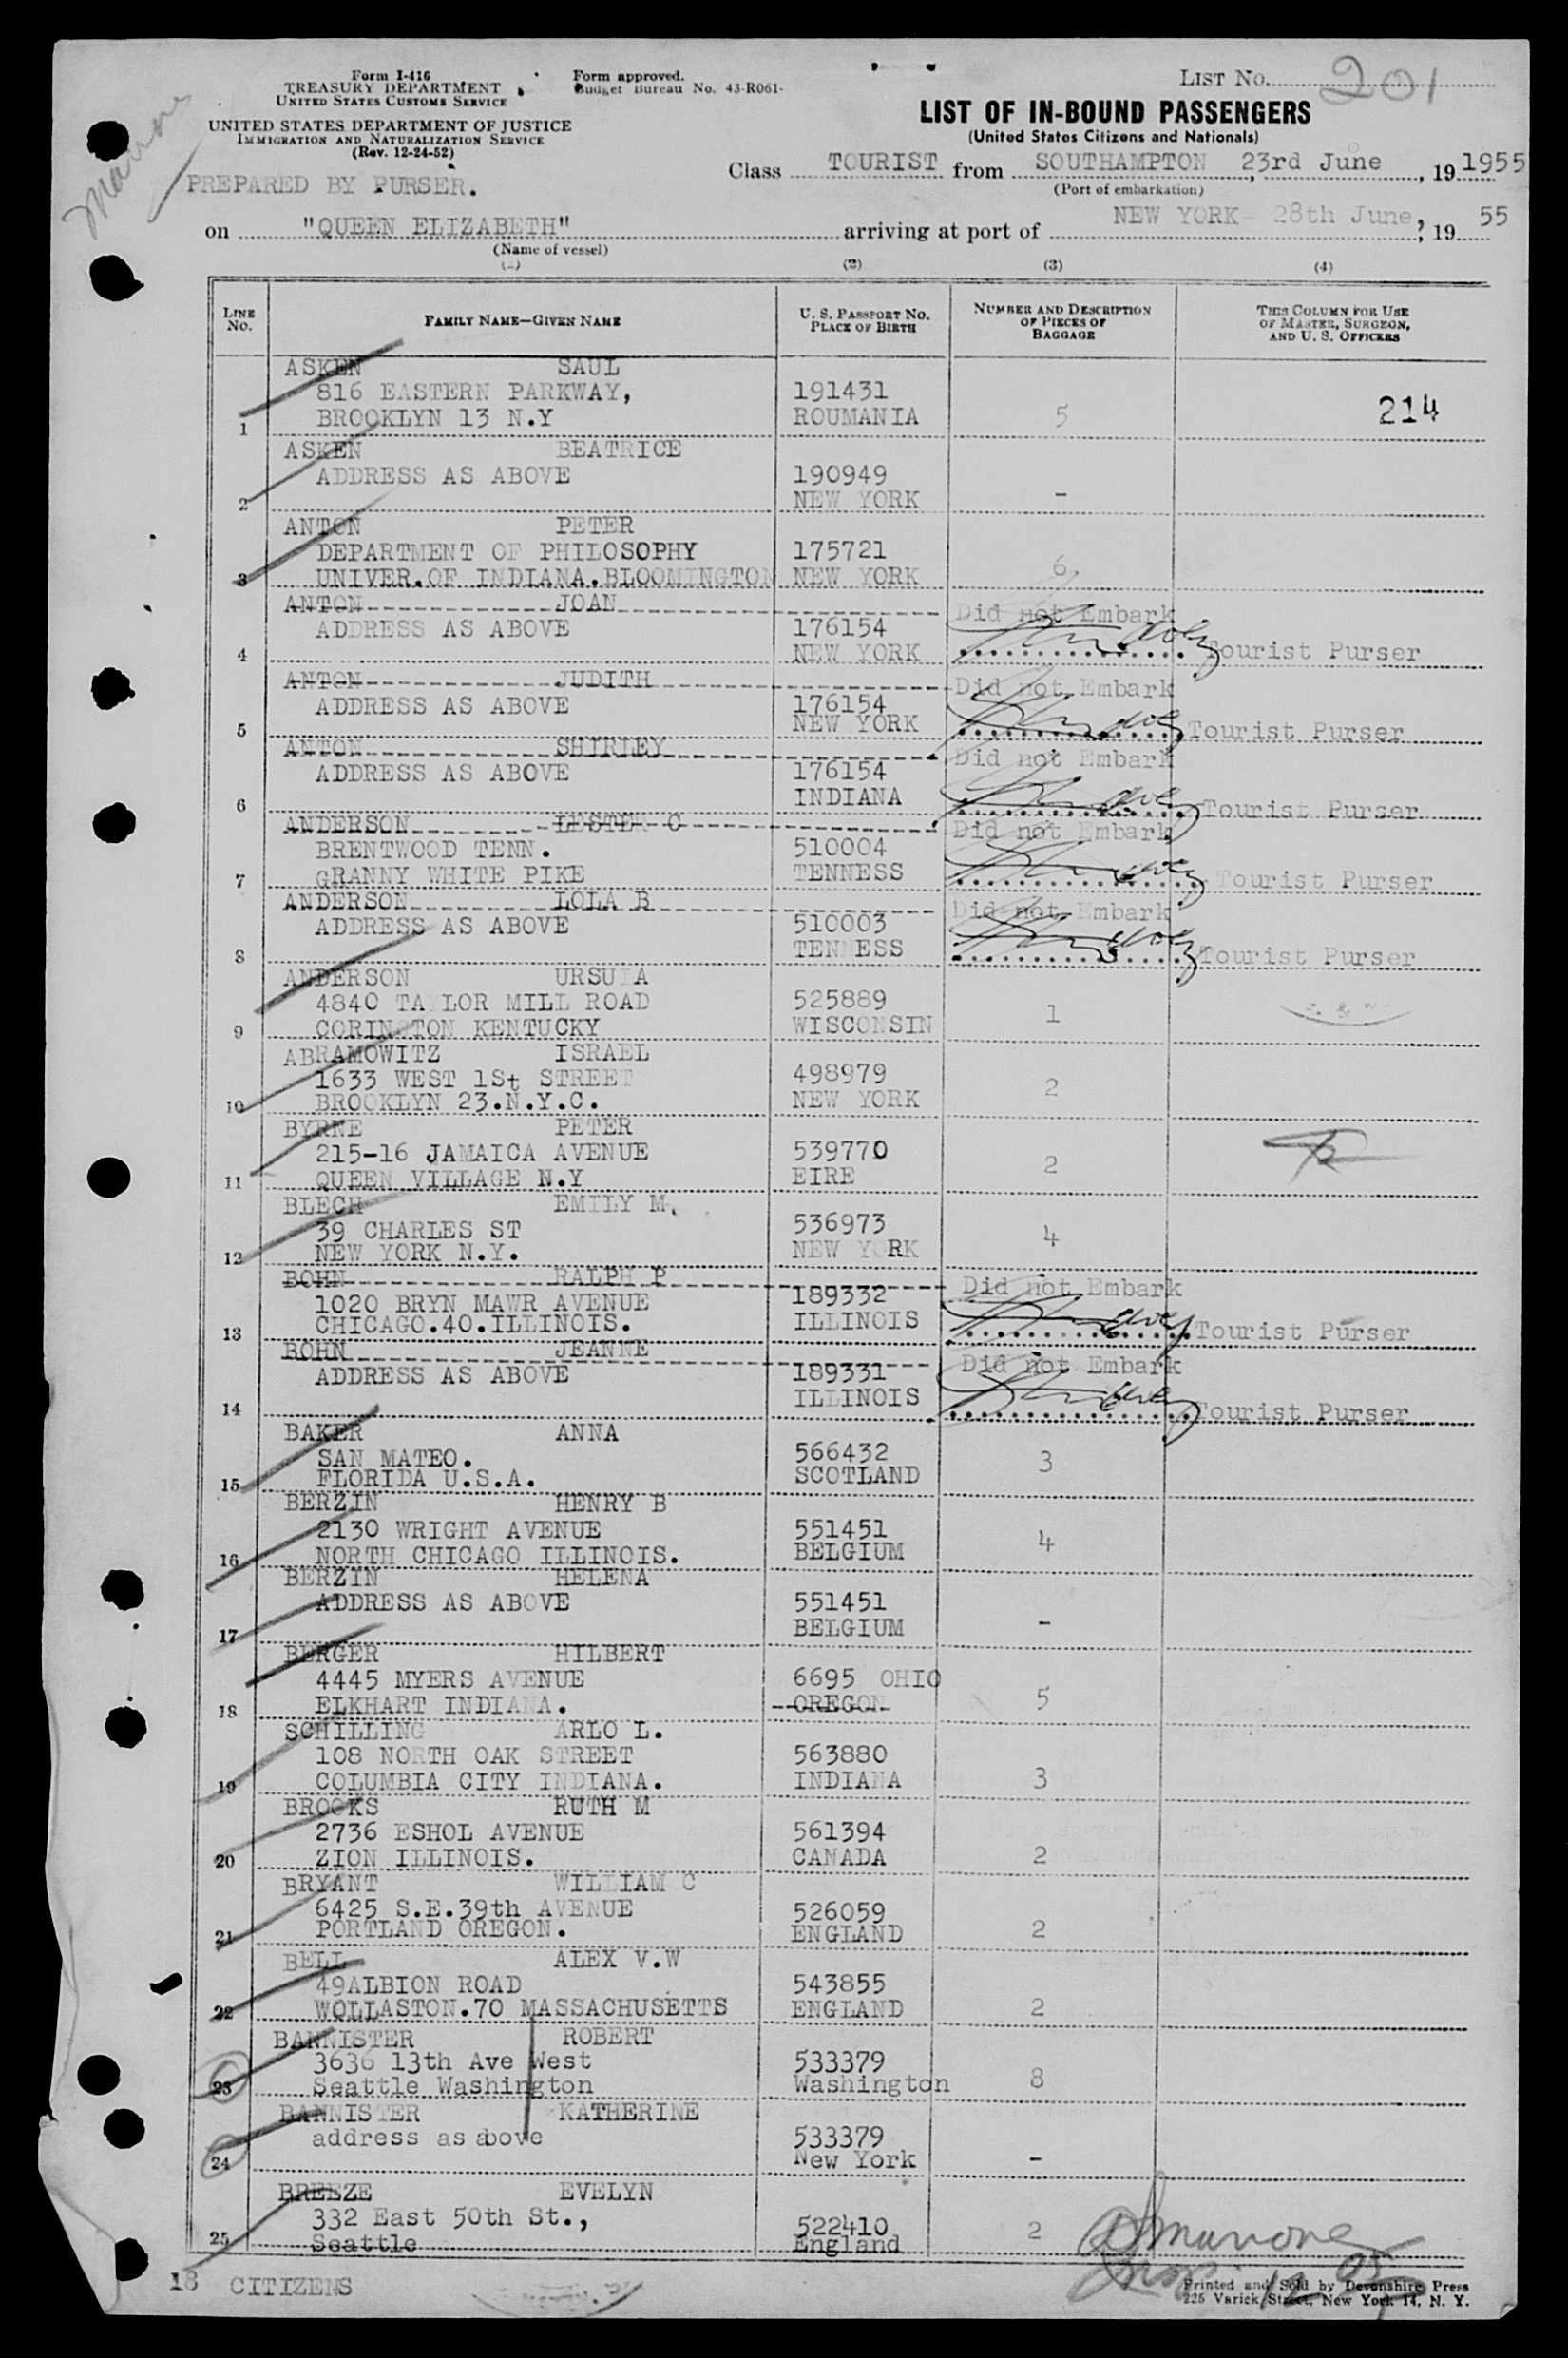 Form I-416
TREASURY DEPARTMENT
UNITED STATES CUSTOMS SERVICE
Form approved.
Budget Bureau No. 43-R061-
LIST No. 201
UNITED STATES DEPARTMENT OF JUSTICE
IMMIGRATION AND NATURALIZATION SERVICE
(Rev. 12-24-52)
LIST OF IN-BOUND PASSENGERS
(United States Citizens and Nationals)
PREPARED BY PURSER.
Class TOURIST from SOUTHAMPTON 23rd June, 19 1955
(Port of embarkation)
on "QUEEN ELIZABETH" arriving at port of NEW YORK- 28th June, 19 55
(Name of vessel)
(1) (2) (3) (4)
LINE No. FAMILY NAME—GIVEN NAME U. S. PASSPORT No. PLACE OF BIRTH NUMBER AND DESCRIPTION OF PIECES OF BAGGAGE THIS COLUMN FOR USE OF MASTER, SURGEON, AND U. S. OFFICERS
ASKEN SAUL
816 EASTERN PARKWAY, 191431
1 BROOKLYN 13 N.Y ROUMANIA 5 214
ASKEN BEATRICE
ADDRESS AS ABOVE 190949
2 NEW YORK -
ANTON PETER
DEPARTMENT OF PHILOSOPHY 175721
3 UNIVER.OF INDIANA.BLOOMINGTON NEW YORK 6.
ANTON JOAN Did not Embark
ADDRESS AS ABOVE 176154
4 NEW YORK Tourist Purser
ANTON JUDITH Did not Embark
ADDRESS AS ABOVE 176154
5 NEW YORK Tourist Purser
ANTON SHIRLEY Did not Embark
ADDRESS AS ABOVE 176154
6 INDIANA Tourist Purser
ANDERSON LESTER C Did not Embark
BRENTWOOD TENN. 510004
7 GRANNY WHITE PIKE TENNESS Tourist Purser
ANDERSON LOLA B Did not Embark
ADDRESS AS ABOVE 510003
8 TENNESS Tourist Purser
ANDERSON URSULA
4840 TAYLOR MILL ROAD 525889
9 CORINGTON KENTUCKY WISCONSIN 1
ABRAMOWITZ ISRAEL
1633 WEST 1St STREET 498979
10 BROOKLYN 23.N.Y.C. NEW YORK 2
BYRNE PETER
215-16 JAMAICA AVENUE 539770
11 QUEEN VILLAGE N.Y EIRE 2
BLECH EMILY M.
39 CHARLES ST 536973
12 NEW YORK N.Y. NEW YORK 4
BOHN RALPH P Did not Embark
1020 BRYN MAWR AVENUE 189332
13 CHICAGO.40.ILLINOIS. ILLINOIS Tourist Purser
BOHN JEANNE Did not Embark
ADDRESS AS ABOVE 189331
14 ILLINOIS Tourist Purser
BAKER ANNA
SAN MATEO. 566432
15 FLORIDA U.S.A. SCOTLAND 3
BERZIN HENRY B
2130 WRIGHT AVENUE 551451
16 NORTH CHICAGO ILLINOIS. BELGIUM 4
BERZIN HELENA
ADDRESS AS ABOVE 551451
17 BELGIUM -
BERGER HILBERT
4445 MYERS AVENUE 6695 OHIO
18 ELKHART INDIANA. OREGON 5
SCHILLING ARLO L.
108 NORTH OAK STREET 563880
19 COLUMBIA CITY INDIANA. INDIANA 3
BROOKS RUTH M
2736 ESHOL AVENUE 561394
20 ZION ILLINOIS. CANADA 2
BRYANT WILLIAM C
6425 S.E.39th AVENUE 526059
21 PORTLAND OREGON. ENGLAND 2
BELL ALEX V.W
49ALBION ROAD 543855
22 WOLLASTON.70 MASSACHUSETTS ENGLAND 2
BANNISTER ROBERT
3636 13th Ave West 533379
23 Seattle Washington Washington 8
BANNISTER KATHERINE
address as above 533379
24 New York -
BREEZE EVELYN
332 East 50th St., 522410
25 Seattle England 2
18 CITIZENS
Printed and Sold by Devonshire Press
225 Varick Street, New York 14, N. Y.